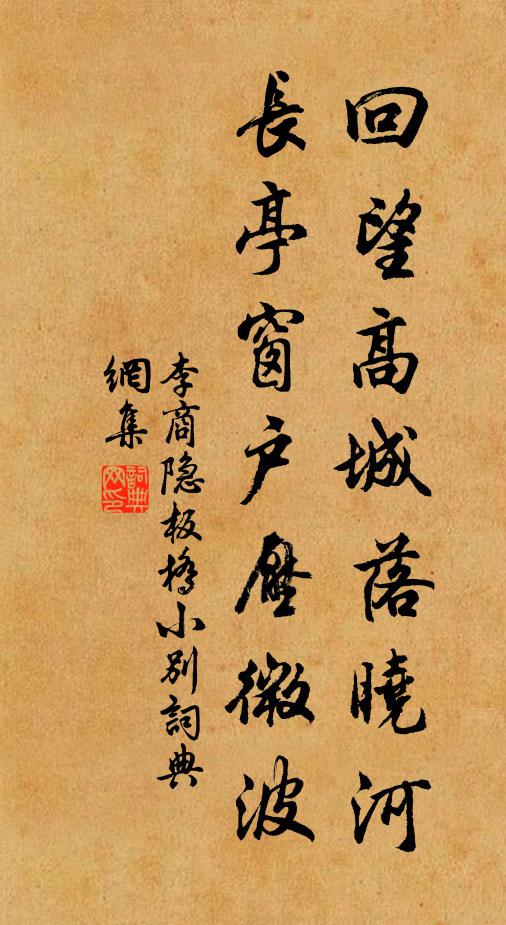 回望高城落曉河
長亭窗戶壓微波
李商隐板橋小别詞典
網集
詞典網印